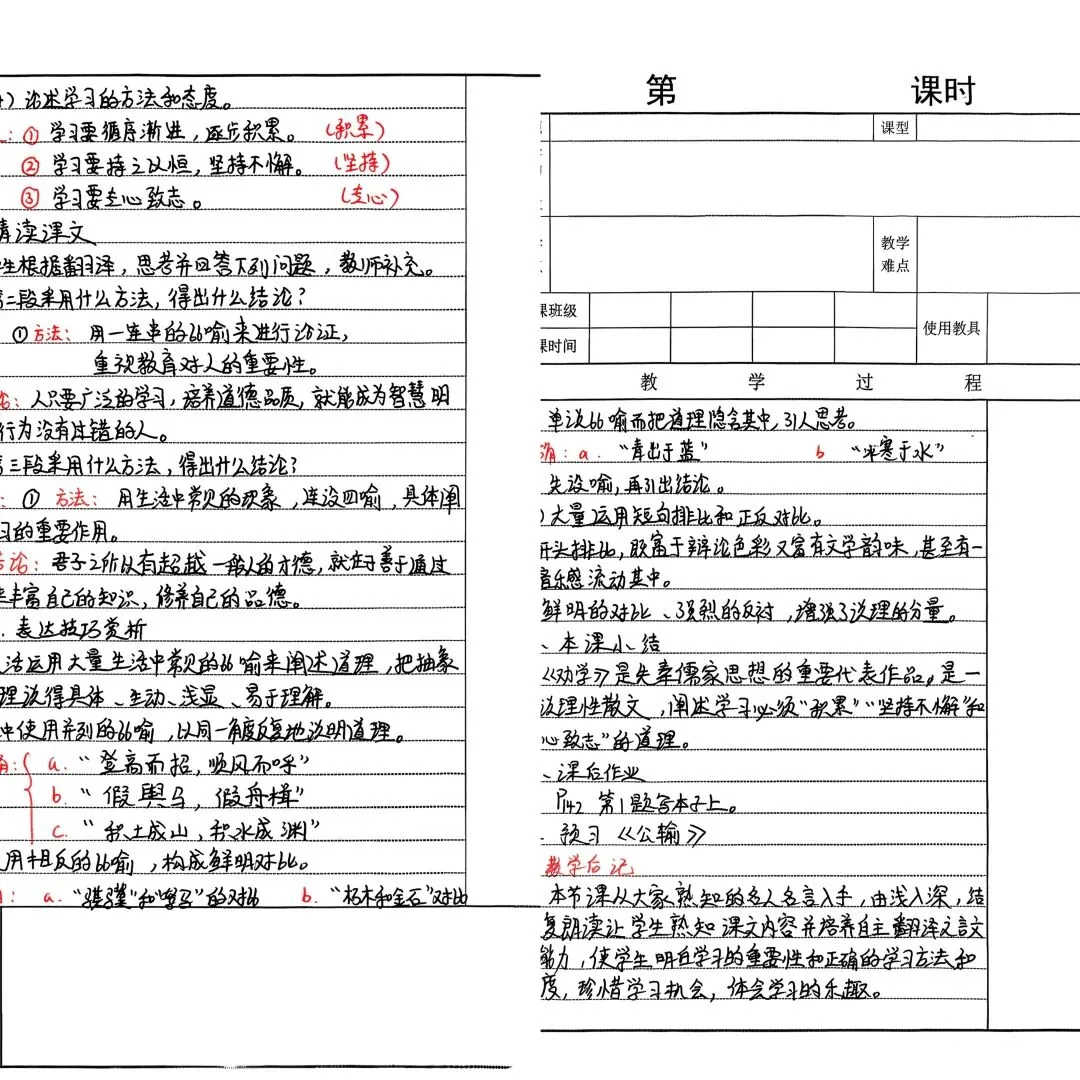 ）论述学习的方法和态度。
：① 学习要循序渐进，逐步积累。（积累）
② 学习要持之以恒，坚持不懈。（坚持）
③ 学习要专心致志。（专心）
精读课文
生根据翻译，思考并回答下列问题，教师补充。
第二段采用什么方法，得出什么结论？
① 方法：用一连串的比喻来进行论证，
重视教育对人的重要性。
论：人只要广泛的学习，培养道德品质，就能成为智慧明
行为没有过错的人。
第三段采用什么方法，得出什么结论？
：① 方法：用生活中常见的现象，连设四喻，具体阐
习的重要作用。
结论：君子之所以有超越一般人的才德，就在于善于通过
丰富自己的知识，修养自己的品德。
．表达技巧赏析
活运用大量生活中常见的比喻来阐述道理，把抽象
理说得具体、生动、浅显、易于理解。
中使用并列的比喻，以同一角度反复地说明道理。
a．“登高而招，顺风而呼”
b．“假舆马，假舟楫”
c．“积土成山，积水成渊”
用相反的比喻，构成鲜明对比。
：a．“骐骥”和“驽马”的对比 b．“朽木和金石”对比
第 课时
课型
教学
难点
课班级
使用教具
课时间
教 学 过 程
单说比喻而把道理隐含其中，引人思考。
：a．“青出于蓝” b “冰寒于水”
先设喻，再引出结论。
）大量运用短句排比和正反对比。
开头排比，既富于辩论色彩又富有文学韵味，甚至有一
音乐感流动其中。
鲜明的对比、强烈的反衬，增强了说理的分量。
、本课小结
《劝学》是先秦儒家思想的重要代表作品，是一
说理性散文，阐述学习必须“积累”“坚持不懈”和
心致志”的道理。
、课后作业
P142 第1题写本子上。
．预习《公输》
教学后记
本节课从大家熟知的名人名言入手，由浅入深，结
复朗读让学生熟知课文内容并培养自主翻译文言文
能力，使学生明白学习的重要性和正确的学习方法和
度，珍惜学习机会，体会学习的乐趣。